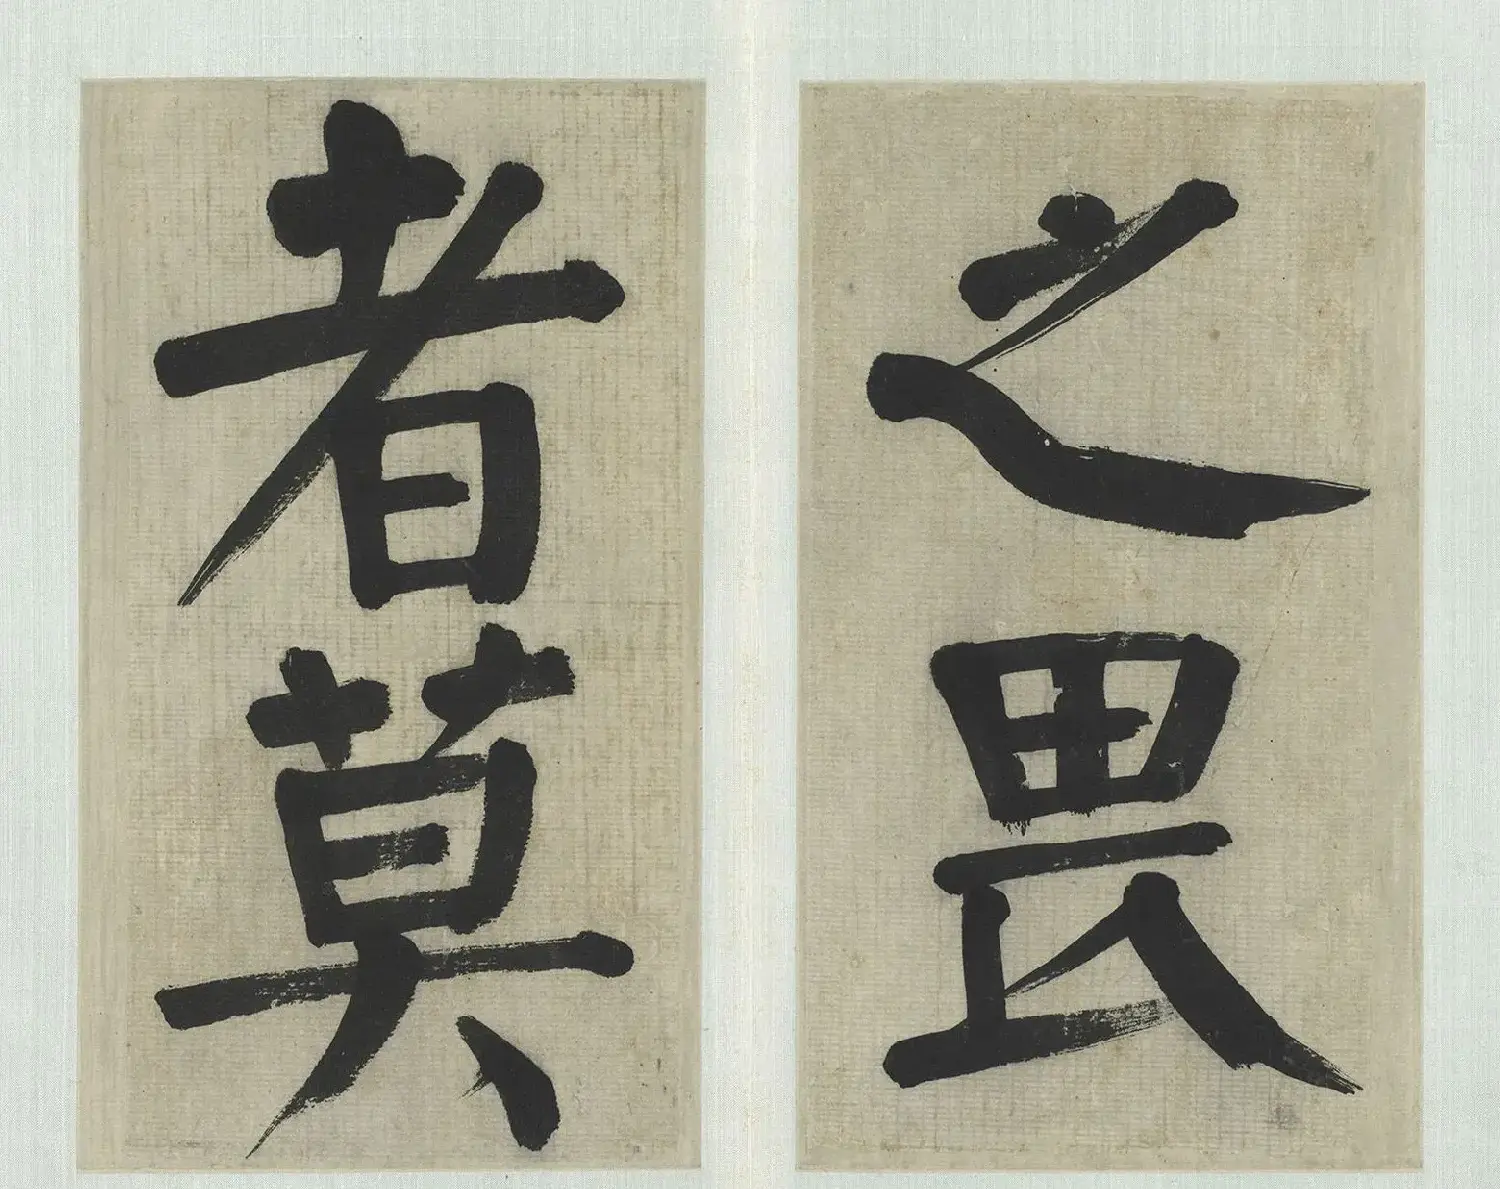 之畏
者莫